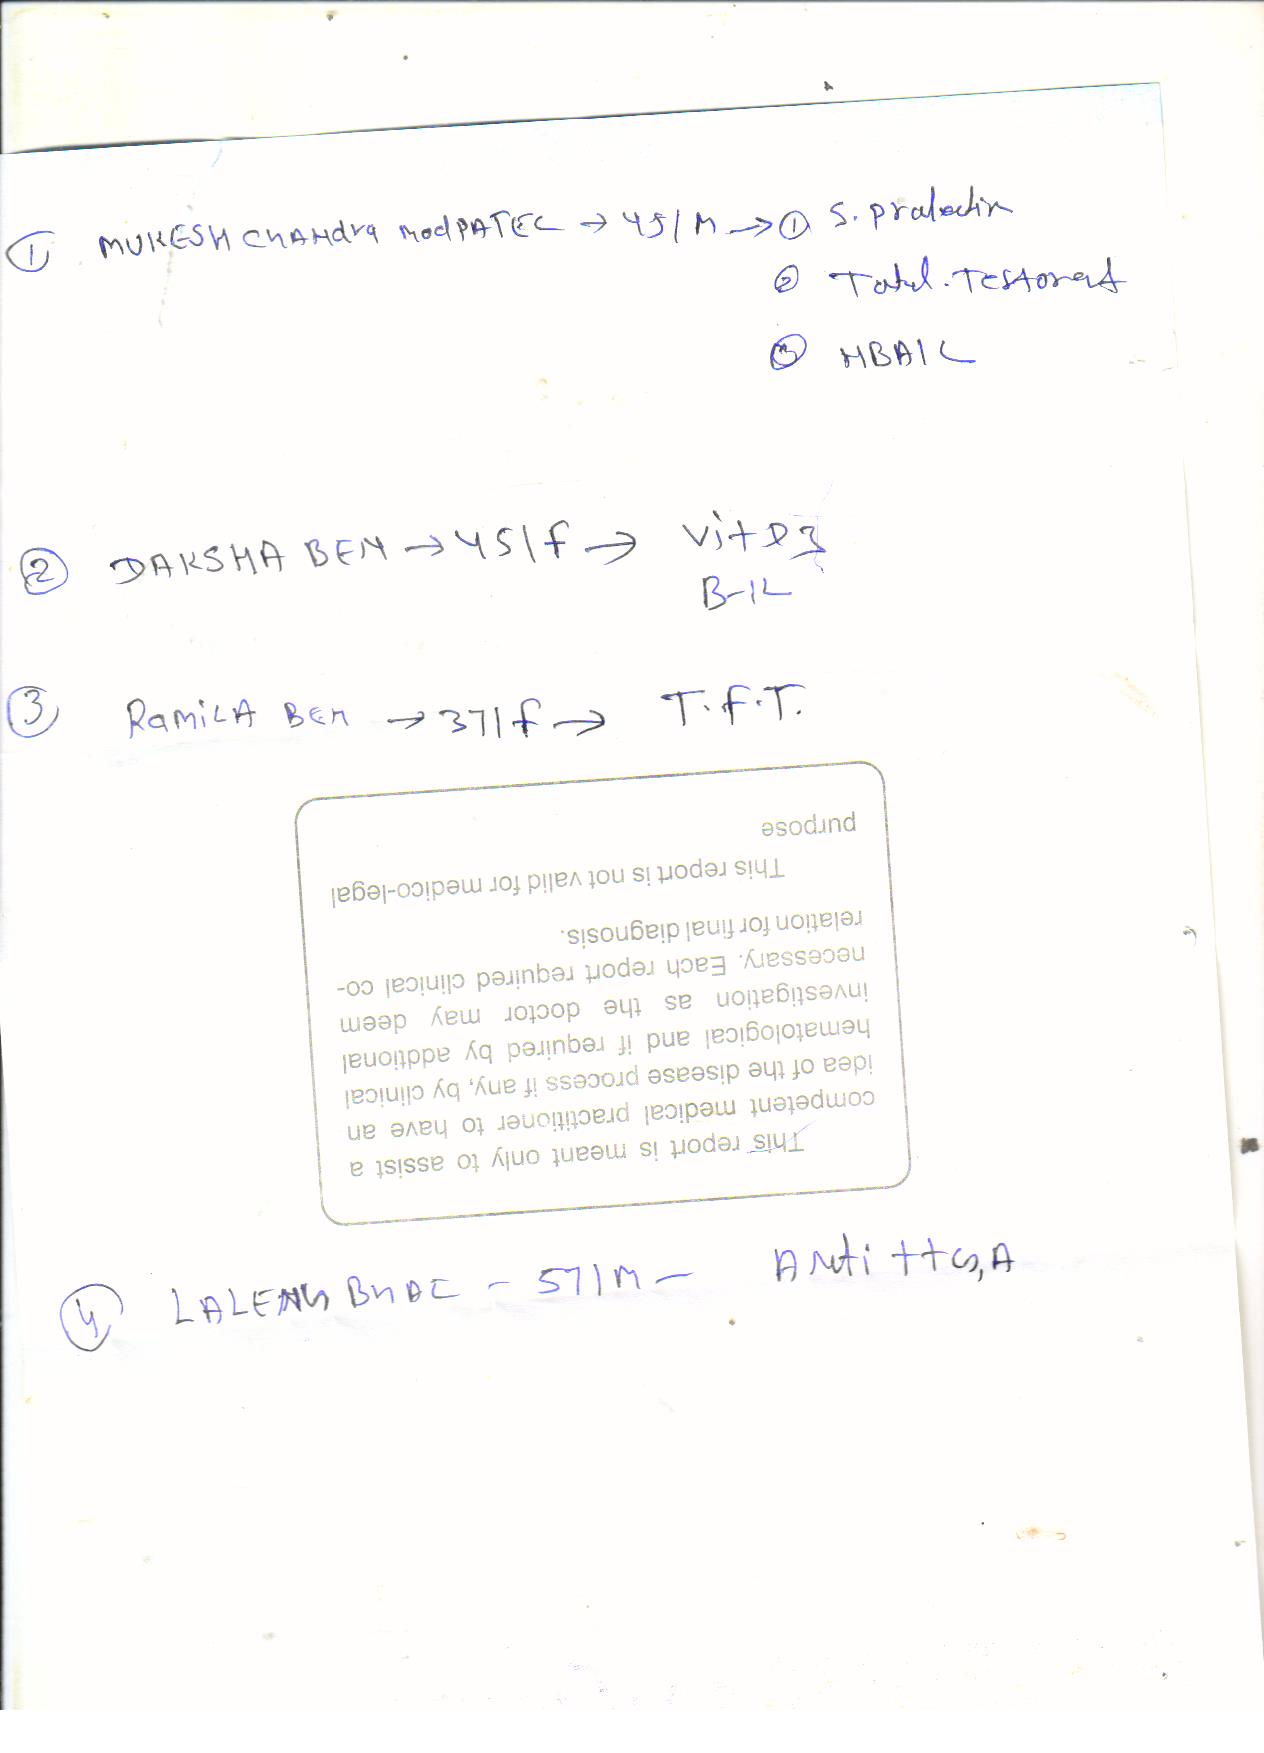 ① MUKESH CHANdra modPATEL → 45/M → ① S. prolactin
② Total. Testorest
③ HBA1C
② DAKSHA BEN → 45/f → Vit D3
B-12
③ RAMILA BEN → 37/f → T.F.T.
This report is meant only to assist a
competent medical practitioner to have an
idea of the disease process if any, by clinical
hematological and if required by addtional
investigation as the doctor may deem
necessary. Each report required clinical co-
relation for final diagnosis.
This report is not valid for medico-legal
purpose
④ - 57/M - Anti ttG,A